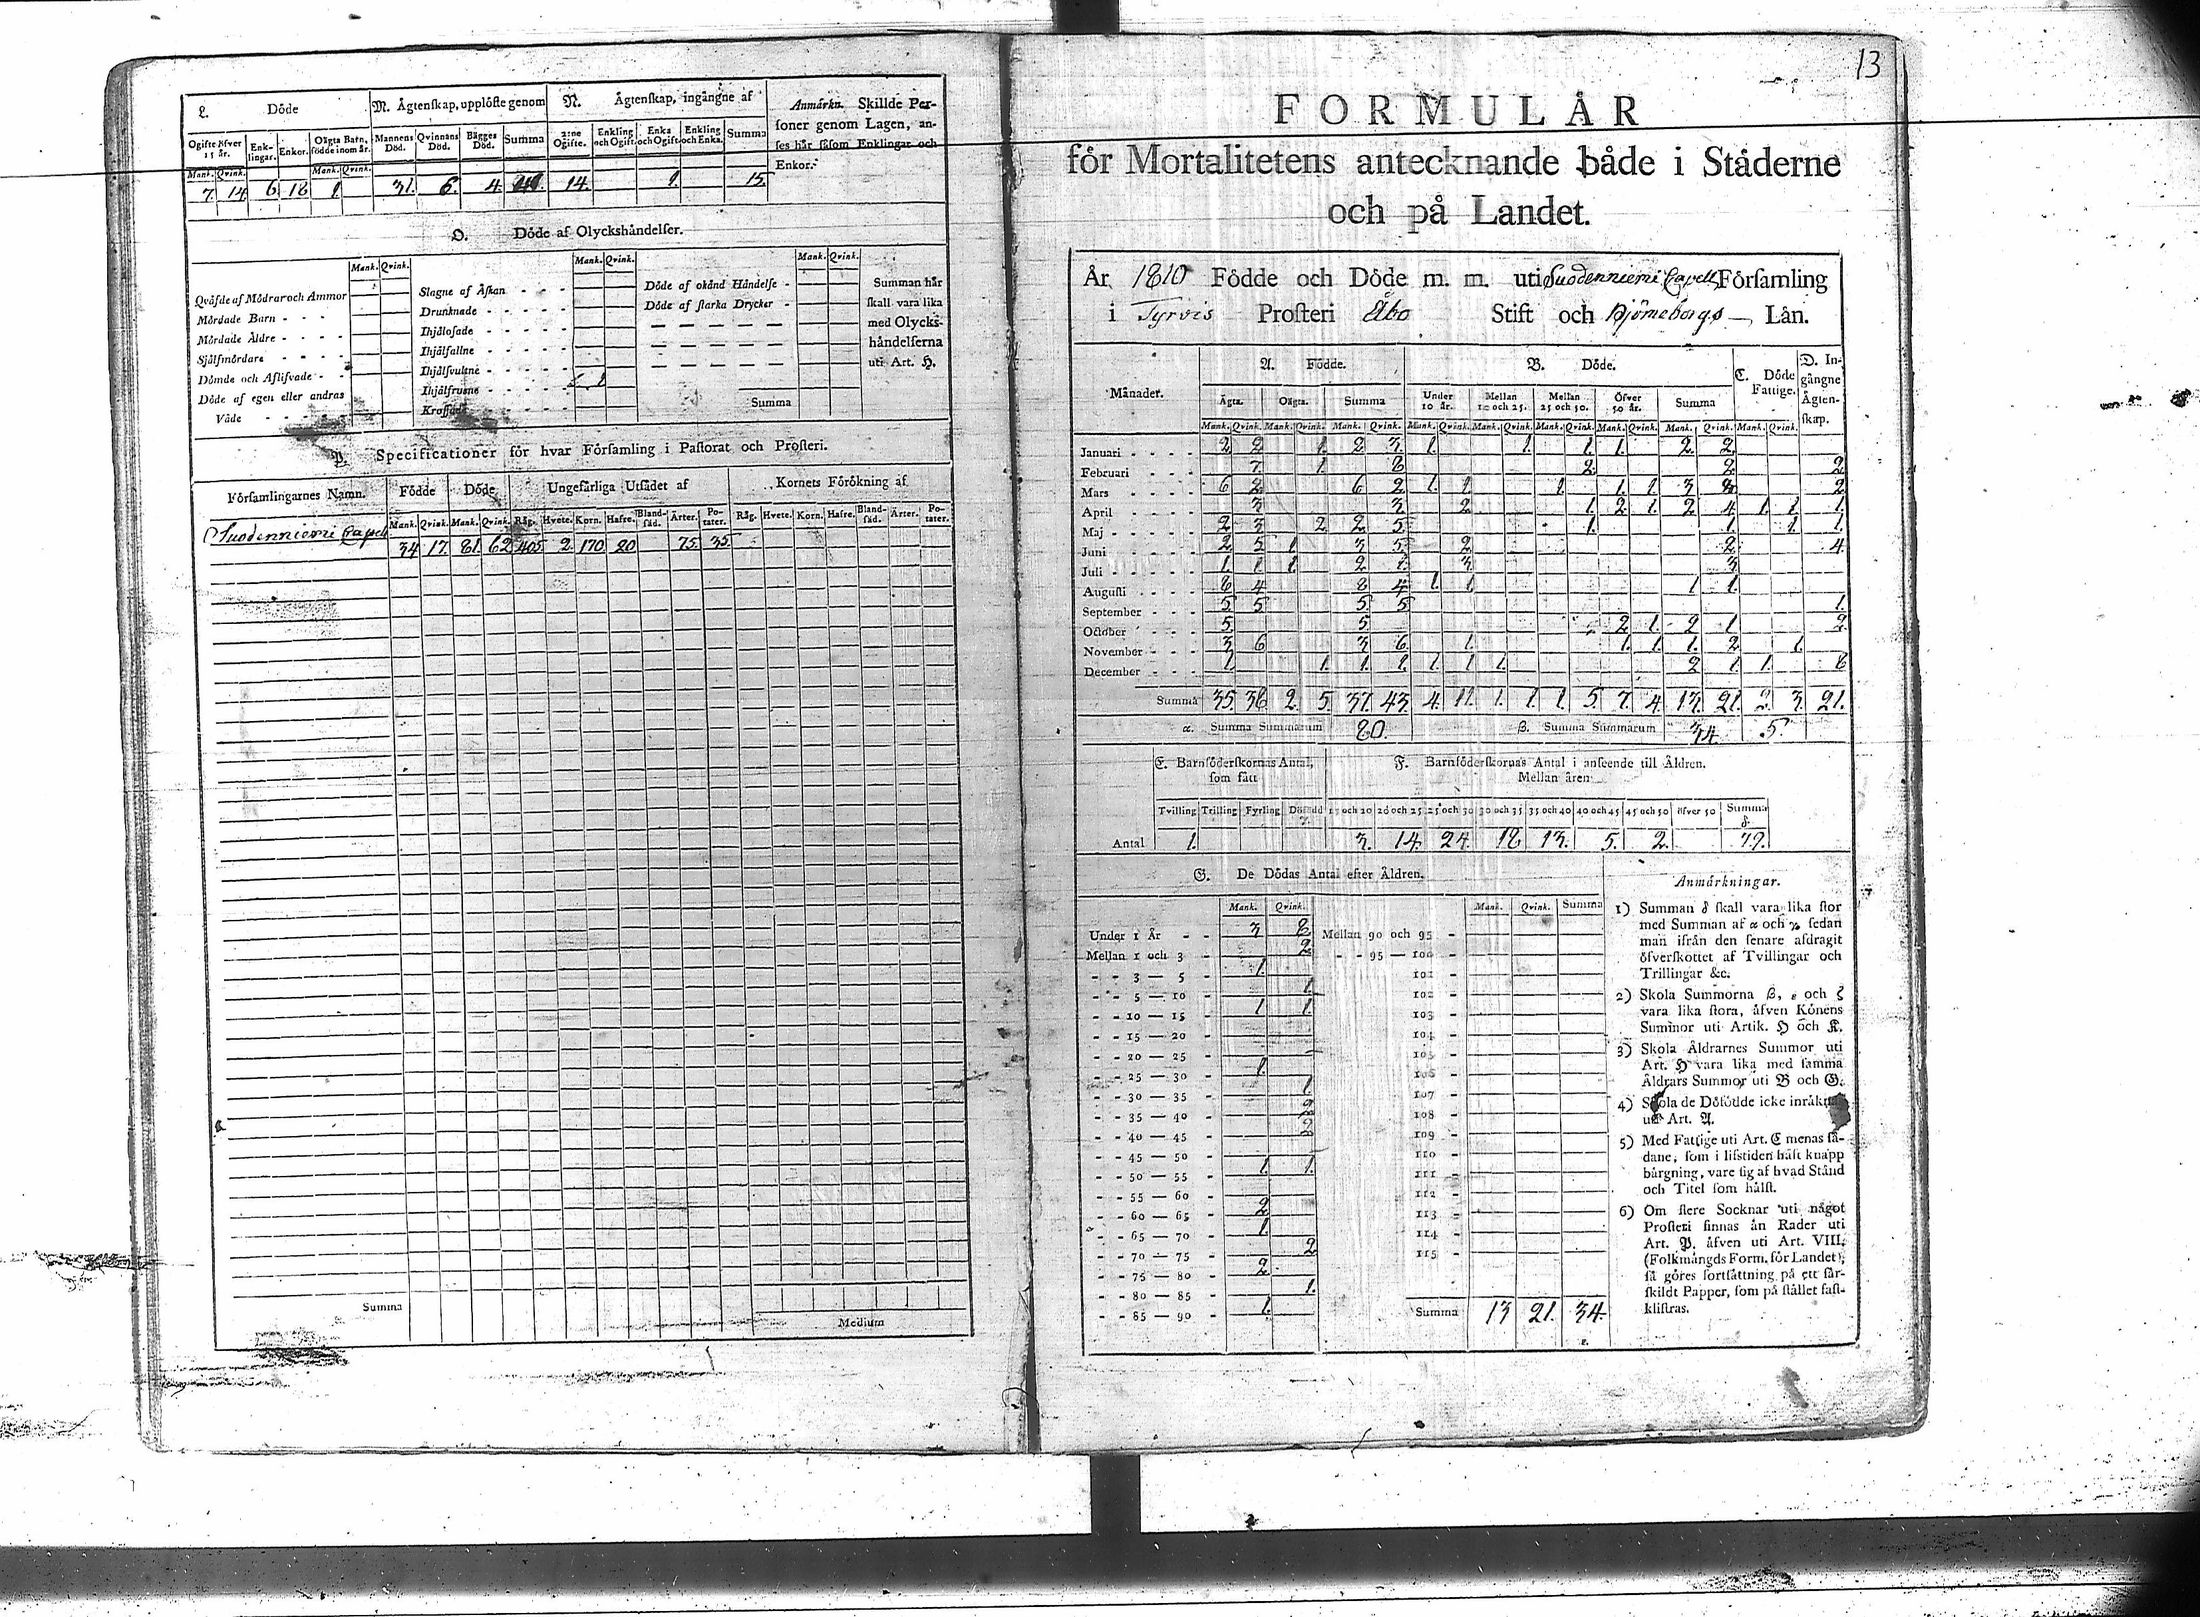 L. Döde
M. Ägtenskap, upplöste genom
N. Ägtenskap, ingångne af
Anmärkn. Skillde Per-
soner genom Lagen, an-
ses här såsom Enklingar och
Enkor.
Ogifte öfver 15 år. Enk-lingar. Enkor. Oägta Barn, födde inom år. Mannens Död. Qvinnans Död. Bägges Död. Summa 2:ne Ogifte. Enkling och Ogift. Enka och Ogift. Enkling och Enka. Summa
Mank. Qvink. Mank. Qvink.
7. 14. 6. 18. 1. 31. 6. 4. 41. 14. 1. 15.
O. Döde af Olyckshändelser.
Mank. Qvink. Mank. Qvink. Mank. Qvink.
Qväfde af Mödrar och Ammor
Mördade Barn - - -
Mördade Äldre - - - -
Sjelfmördare - - - -
Dömde och Aflifvade - -
Döde af egen eller andras
Våde - - - - -
Slagne af Åskan - - -
Drunknade - - - - -
Ihjälosade - - - - -
Ihjälfallne - - - - -
Ihjälsvultne - - - - -
Ihjälfrusne - - - - -
Krossade - - - - -
Döde af okänd Händelse -
Döde af starka Drycker -
Summa
Summan här
skall vara lika
med Olycks-
händelserna
uti Art. H.
P. Specificationer för hvar Församling i Pastorat och Prosteri.
Församlingarnes Namn. Födde Döde Ungefärliga Utsädet af Kornets Förökning af
Mank. Qvink. Mank. Qvink. Råg. Hvete. Korn. Hafre. Bland-säd. Ärter. Po-tater. Råg. Hvete. Korn. Hafre. Bland-säd. Ärter. Po-tater.
Suodenniemi Capell 34 17. 81. 62 405 2. 170 80 75. 35.
Summa
Medium
13
FORMULÄR
för Mortalitetens antecknande både i Städerne
och på Landet.
År 1810 Födde och Döde m. m. uti Suodenniemi Capells Församling
i Tyrvis Prosteri Åbo Stift och Björneborgs Län.
Månader. A. Födde. B. Döde. C. Döde Fattige. D. In-gångne Ägten-skap.
Ägta. Oägta. Summa Under 10 år. Mellan 10 och 25. Mellan 25 och 50. Öfver 50 år. Summa
Mank. Qvink. Mank. Qvink. Mank. Qvink. Mank. Qvink. Mank. Qvink. Mank. Qvink. Mank. Qvink. Mank. Qvink. Mank. Qvink.
Januari - - - - 2 2 1. 2 3. 1. 1. 1. 1. 2. 2.
Februari - - - - 7. 1. 8 2. 2 2
Mars - - - - 6 2 6 2 1. 1 1. 1. 1. 3 2
April - - - - 3 3 2 1. 2 1. 2 4 1. 1. 1.
Maj - - - - - 2 3 2 2 5 1. 1. 1. 1.
Juni - - - - 2 5 1 3 5 2 2 4
Juli - - - - - 1. 1. 1. 2 1. 3 3
Augusti - - - - 8 4 8 4 1. 1. 1 1.
September - - - 5 5 5 5 1.
October - - - 5 5 2 1. 2 1. 2
November - - - 3 6 3 6. 1. 1. 1. 1. 2 1.
December - - - 1. 1. 1. 1. 1. 1. 1. 2 1. 1. 8
Summa 35 36 2. 5. 37. 43. 4. 11. 1. 1. 1. 5. 7. 4. 13. 21. 2. 3. 21.
α. Summa Summarum 80. β. Summa Summarum 34. 5.
E. Barnföderskornas Antal,
som fått
F. Barnföderskornas Antal i anseende till Åldren.
Mellan åren
Tvilling Trilling Fyrling Dödfödd γ. 15 och 20 20 och 25 25 och 30 30 och 35 35 och 40 40 och 45 45 och 50 öfver 50 Summa δ.
Antal 1. 3. 14. 24. 18 13. 5. 2. 79.
G. De Dödas Antal efter Åldren.
Mank. Qvink. Mank. Qvink. Summa
Under 1 År - - 3 8 Mellan 90 och 95 -
Mellan 1 och 3 - 2 - - 95 — 100 -
- - 3 — 5 - 1. 101 -
- - 5 — 10 - 1. 102 -
- - 10 — 15 - 1 1. 103 -
- - 15 — 20 - 104 -
- - 20 — 25 - 105 -
- - 25 — 30 - 1. 106 -
- - 30 — 35 - 1. 107 -
- - 35 — 40 - 2 108 -
- - 40 — 45 - 2 109 -
- - 45 — 50 - 110 -
- - 50 — 55 - 1. 1. 111 -
- - 55 — 60 - 112 -
- - 60 — 65 - 2 113 -
- - 65 — 70 - 1. 114 -
- - 70 — 75 - 2 115 -
- - 75 — 80 - 2.
- - 80 — 85 - 1.
- - 85 — 90 - 1. Summa 13 21. 34.
ε.
Anmärkningar.
1) Summan δ skall vara lika stor
med Summan af α och γ, sedan
man ifrån den senare afdragit
öfverskottet af Tvillingar och
Trillingar &c.
2) Skola Summorna β, ε och ζ
vara lika stora, äfven Könens
Summor uti Artik. H och K.
3) Skola Åldrarnes Summor uti
Art. H vara lika med samma
Åldrars Summor uti B och G.
4) Skola de Dödfödde icke inräknas
uti Art. A.
5) Med Fattige uti Art. C menas så-
dane, som i lifstiden haft knapp
bärgning, vare sig af hvad Stånd
och Titel som hälst.
6) Om flere Socknar uti något
Prosteri finnas än Rader uti
Art. P, äfven uti Art. VIII.
(Folkmängds Form. för Landet),
så göres fortsättning på ett sär-
skildt Papper, som på stället fast-
klistras.